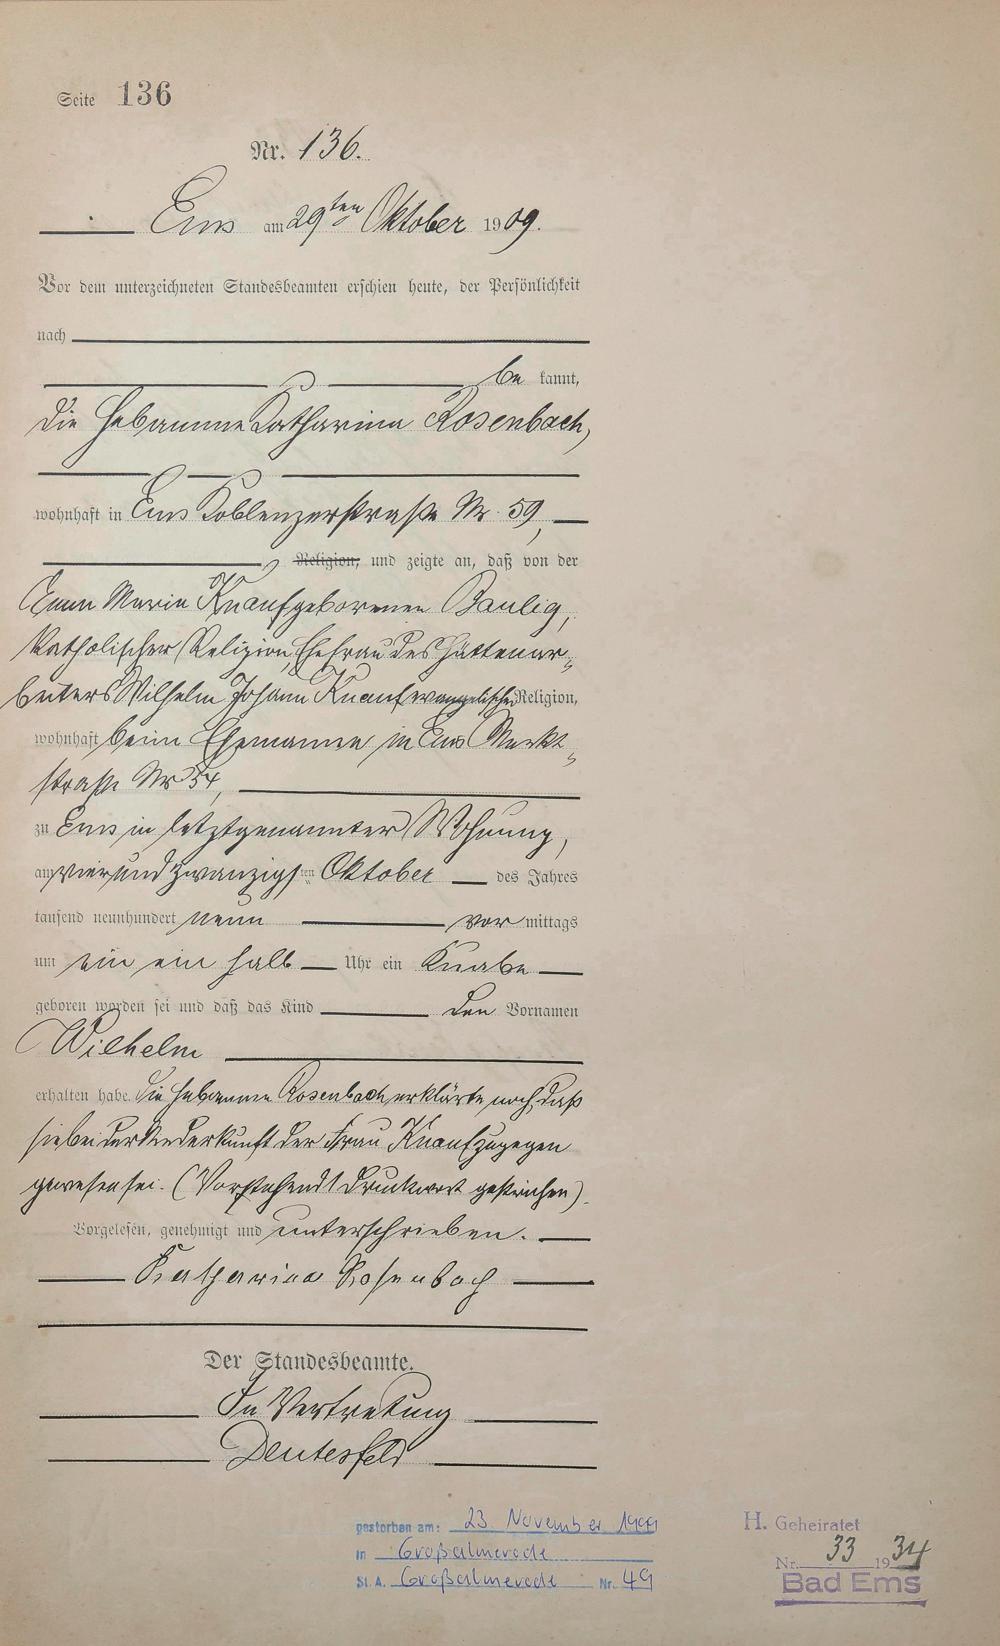 Seite 136
Nr. 136.
Ems am 29ten Oktober 1909.
Vor dem unterzeichneten Standesbeamten erschien heute, der Persönlichkeit
nach
be kannt,
die Hebamme Katharina Rosenbach,
wohnhaft in Ems Koblenzerstraße Nr. 59,
Religion, und zeigte an, daß von der
Maria Knauf geborenen Baulig,
katholischer Religion, Ehefrau des Hüttenar-
beiters Wilhelm Johann Knauf evangelischer Religion,
wohnhaft beim Ehemanne in Ems Markt-
straße Nr 54,
zu Ems in letztgenannter Wohnung,
am vierundzwanzigsten Oktober des Jahres
tausend neunhundert neun vor mittags
um ein ein halb Uhr ein Knabe
geboren worden sei und daß das Kind den Vornamen
Wilhelm
erhalten habe. Die Hebamme Rosenbach erklärte noch, daß
sie bei der Niederkunft der Frau Knauf zugegen
gewesen sei. (Vorstehend 1 Druckwort gestrichen).
Vorgelesen, genehmigt und unterschrieben.
Katharina Rosenbach
Der Standesbeamte.
In Vertretung
Deutesfeld
gestorben am: 23. November
in Großalmerode
St. A. Großalmerode Nr. 49
H. Geheiratet
Nr. 33 1934
Bad Ems